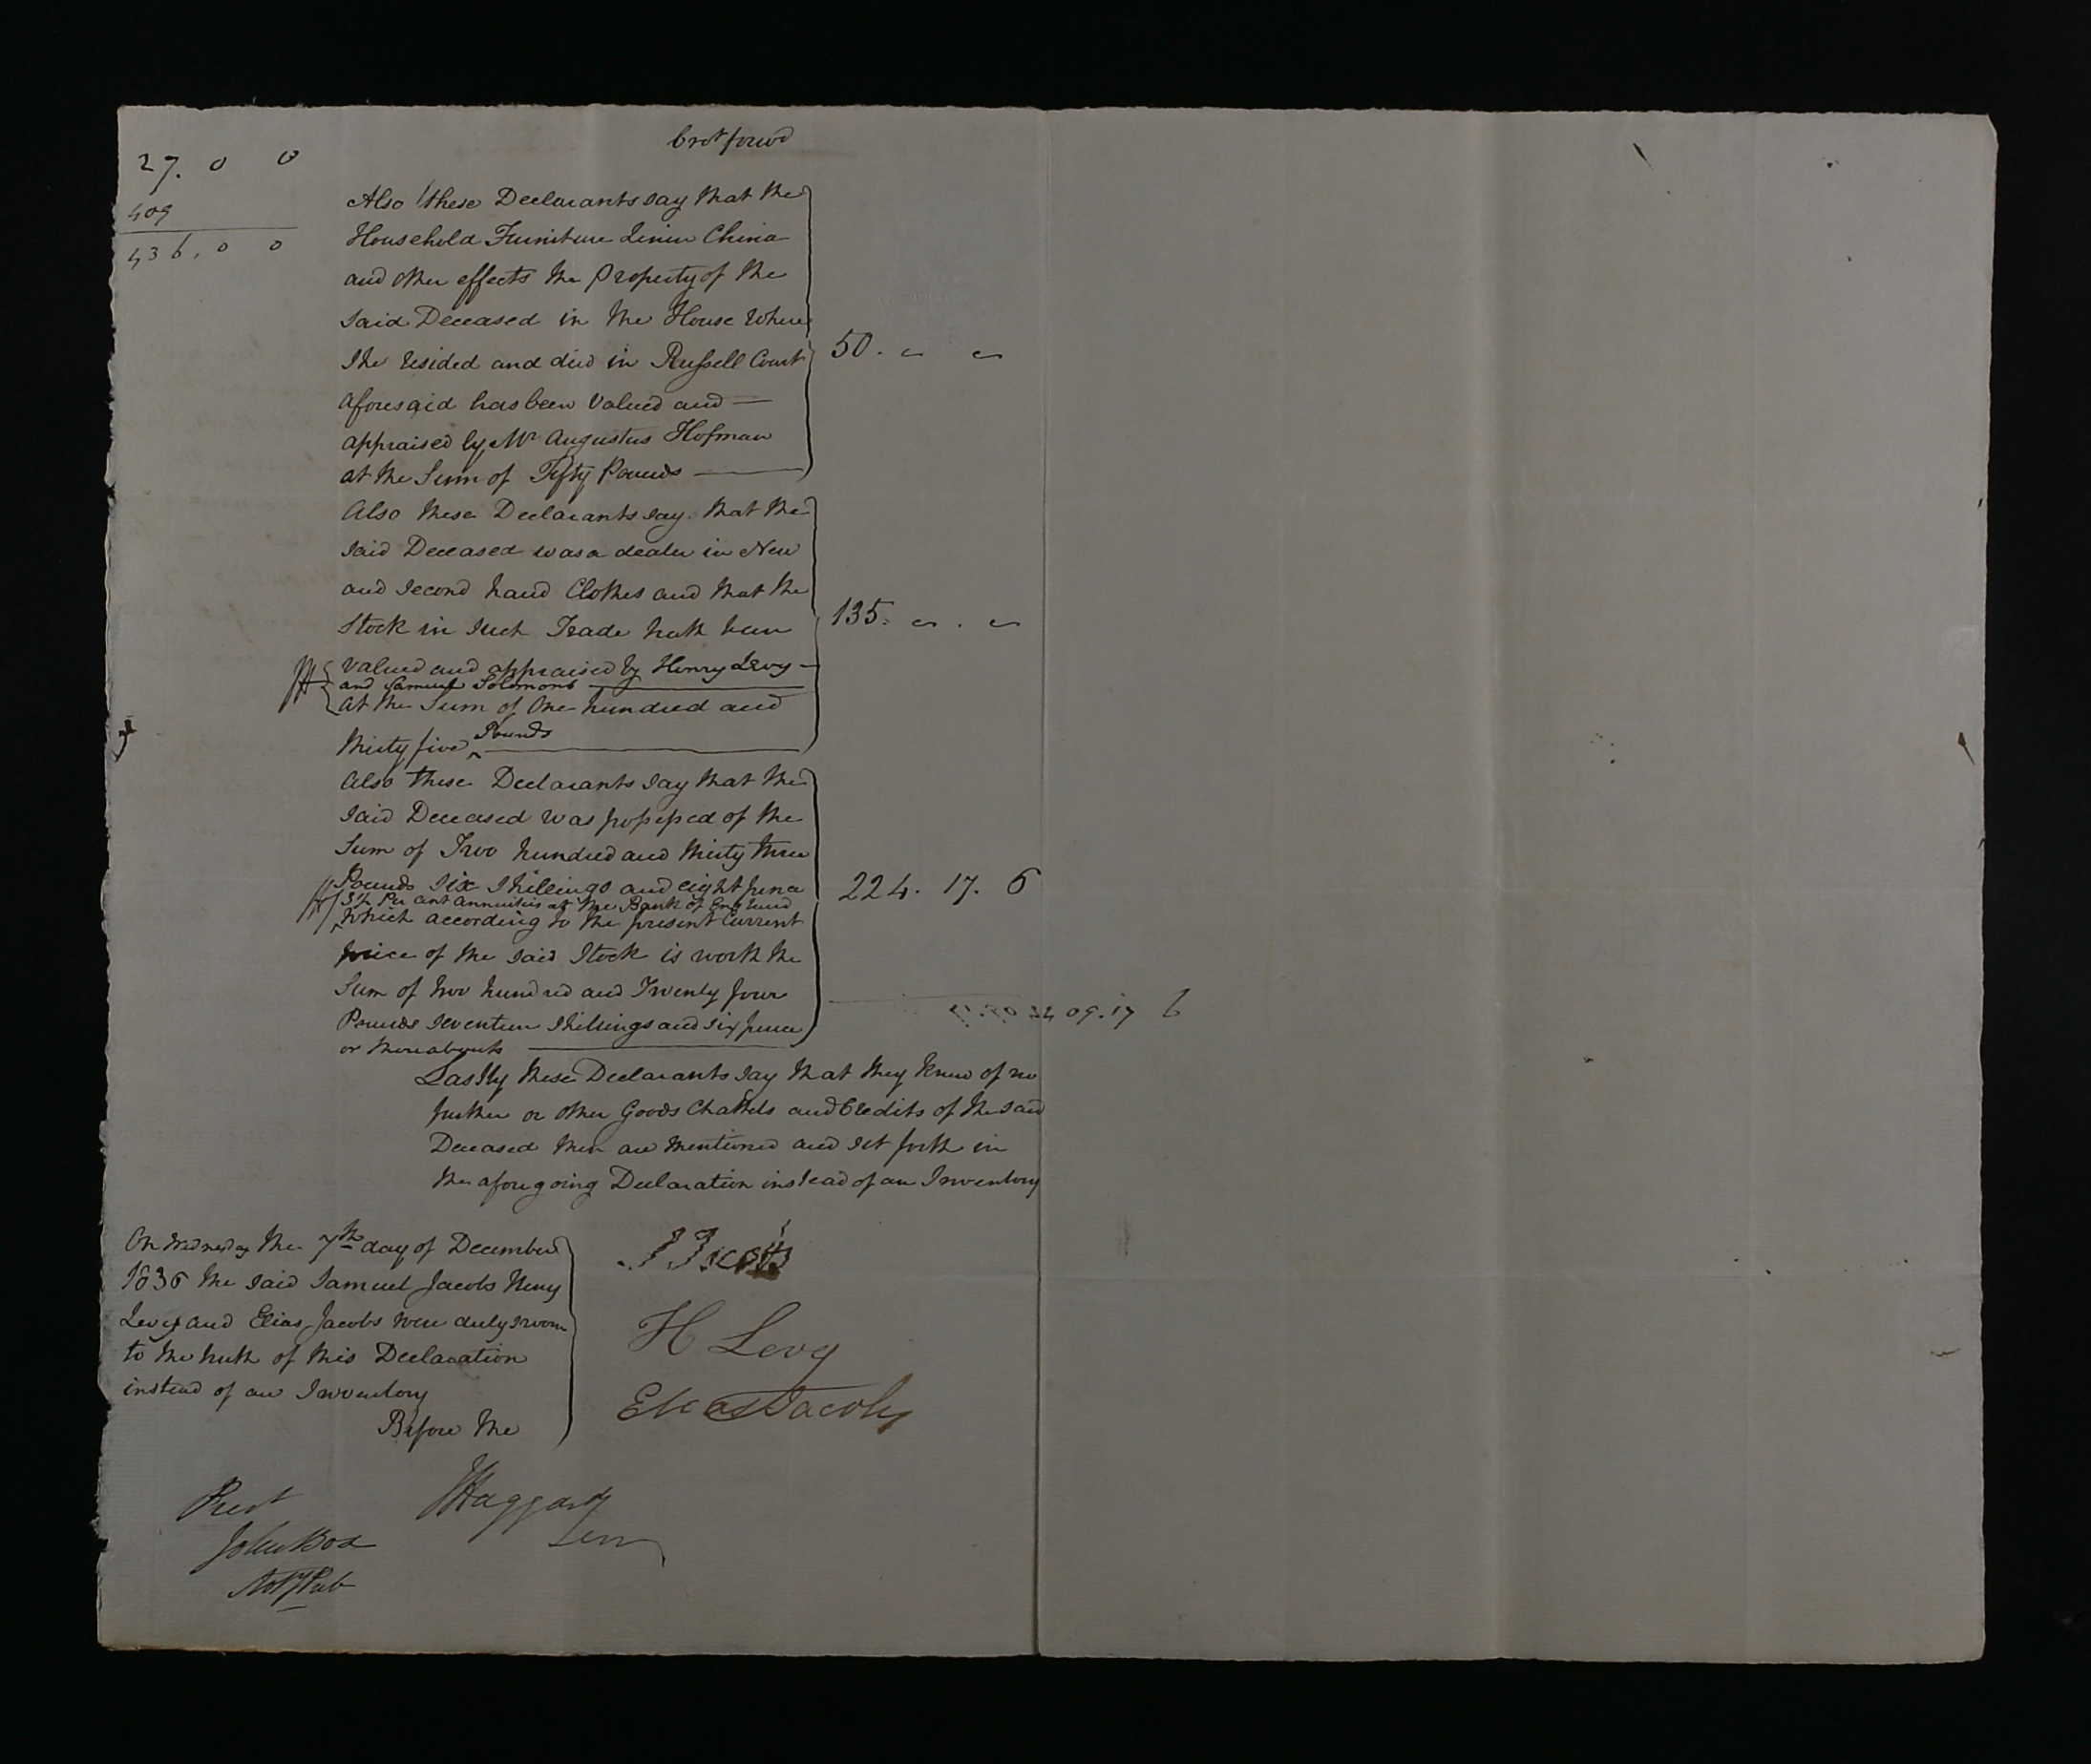 brot forwd
27. 0 0
409
436. 0 0
Also these Declarants say that the
Household Furniture Linen China
and other effects the Property of the
said Deceased in the House where
she resided and died in Russell Court
aforesaid has been Valued and —
appraised by Mr Augustus Hofman
at the Sum of Fifty Pounds —
50. - -
Also these Declarants say that the
said Deceased was a dealer in New
and second hand Clothes and that the
Stock in such Trade hath been
valued and appraised by Henry Levy —
and Samuel Solomons —
at the Sum of One hundred and
thirty five Pounds —
135. - . -
Also these Declarants say that the
said Deceased was possessed of the
Sum of Two hundred and thirty three
Pounds six shillings and eight pence
3½ Per cent annuities at the Bank of England
which according to the present Current
price of the said Stock is worth the
Sum of two hundred and Twenty four
Pounds seventeen shillings and six pence
or thereabouts —
224. 17. 6
409. 17 6
Lastly these Declarants say that they know of no
further or other Goods Chattels and Credits of the said
Deceased than are mentioned and set forth in
the aforegoing Declaration instead of an Inventory
On Wednesday the 7th day of December
1836 the said Samuel Jacobs Henry
Levy and Elias Jacobs were duly sworn
to the truth of this Declaration
instead of an Inventory
Before Me
H Levy
Elias Jacobs
J Haggard
Surr
Prest
John Box
Noty Pub